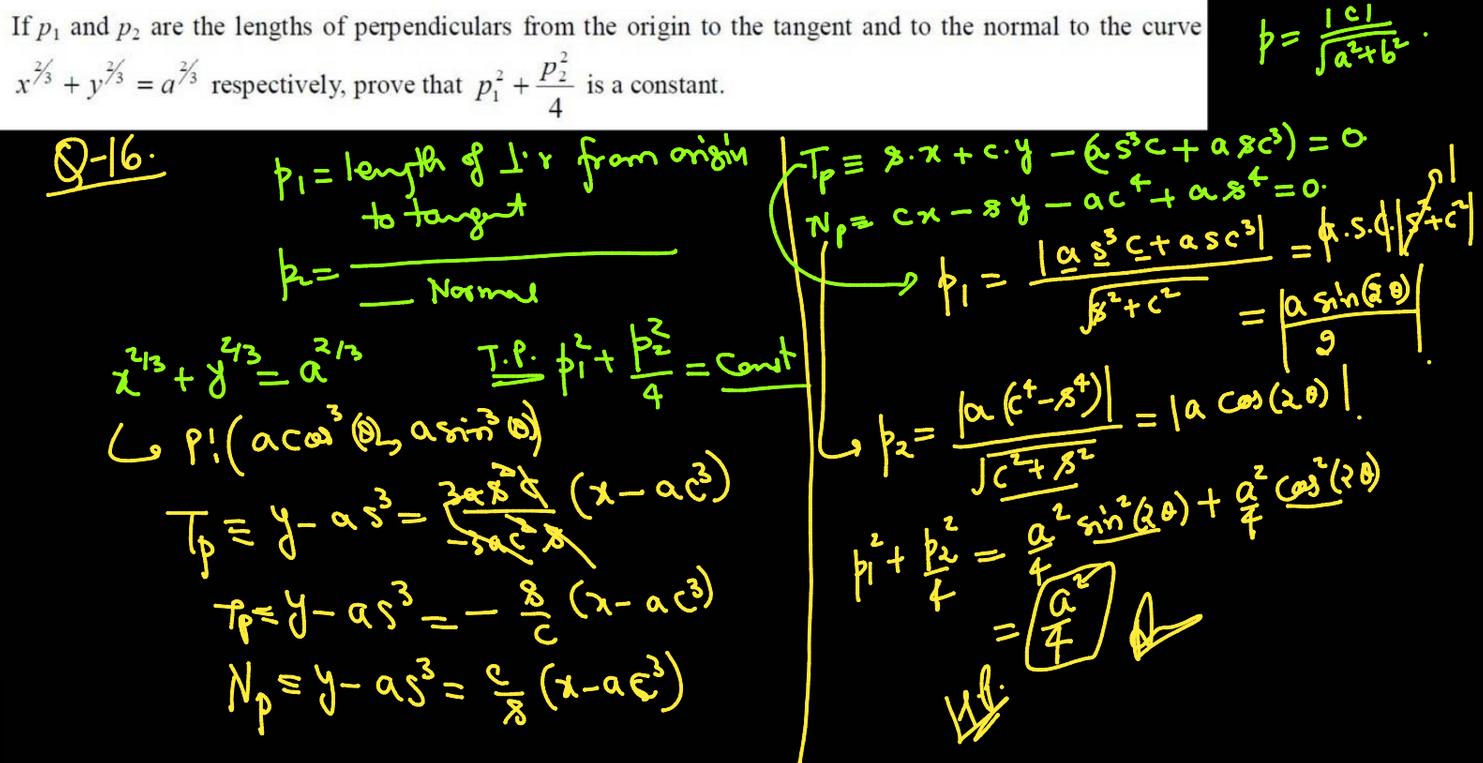 If p₁ and p₂ are the lengths of perpendiculars from the origin to the tangent and to the normal to the curve
x^(2/3) + y^(2/3) = a^(2/3) respectively, prove that p₁² + p₂²/4 is a constant.
p = |c|/√(a²+b²).
Q-16.
p₁ = length of ⊥r from origin
to tangent
p₂ = ——— Normal
x^(2/3) + y^(2/3) = a^(2/3)
T.P. p₁² + p₂²/4 = Const
↳ P:(acos³θ, asin³θ)
T_p ≡ y - as³ = 3as²c/(-3ac²s) (x - ac³)
T_p ≡ y - as³ = - s/c (x - ac³)
N_p ≡ y - as³ = c/s (x - ac³)
T_p ≡ s.x + c.y - (as³c + asc³) = 0
N_p ≡ cx - sy - ac⁴ + as⁴ = 0.
p₁ = |as³c + asc³|/√(s²+c²) = |a.s.c||s²+c²| 1
= |a sin(2θ)/2|.
p₂ = |a(c⁴-s⁴)|/√(c²+s²) = |a cos(2θ)|.
p₁² + p₂²/4 = a²/4 sin²(2θ) + a²/4 cos²(2θ)
= a²/4
H.P.